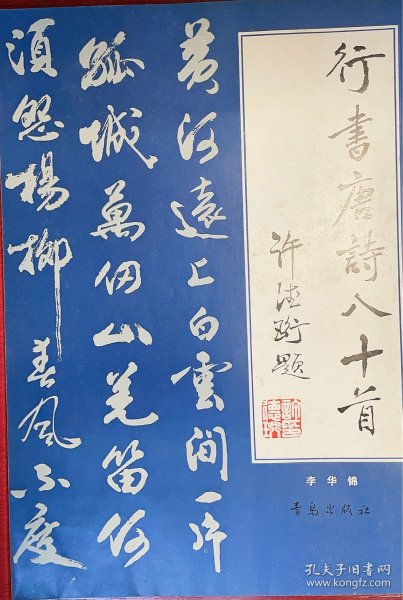 行書唐詩八十首
许德珩题
李华锦
青岛出版社
黄河遠上白雲间一片
孤城萬仞山羌笛何
須怨楊柳春风不度
孔夫子旧书网
www.kongfz.com